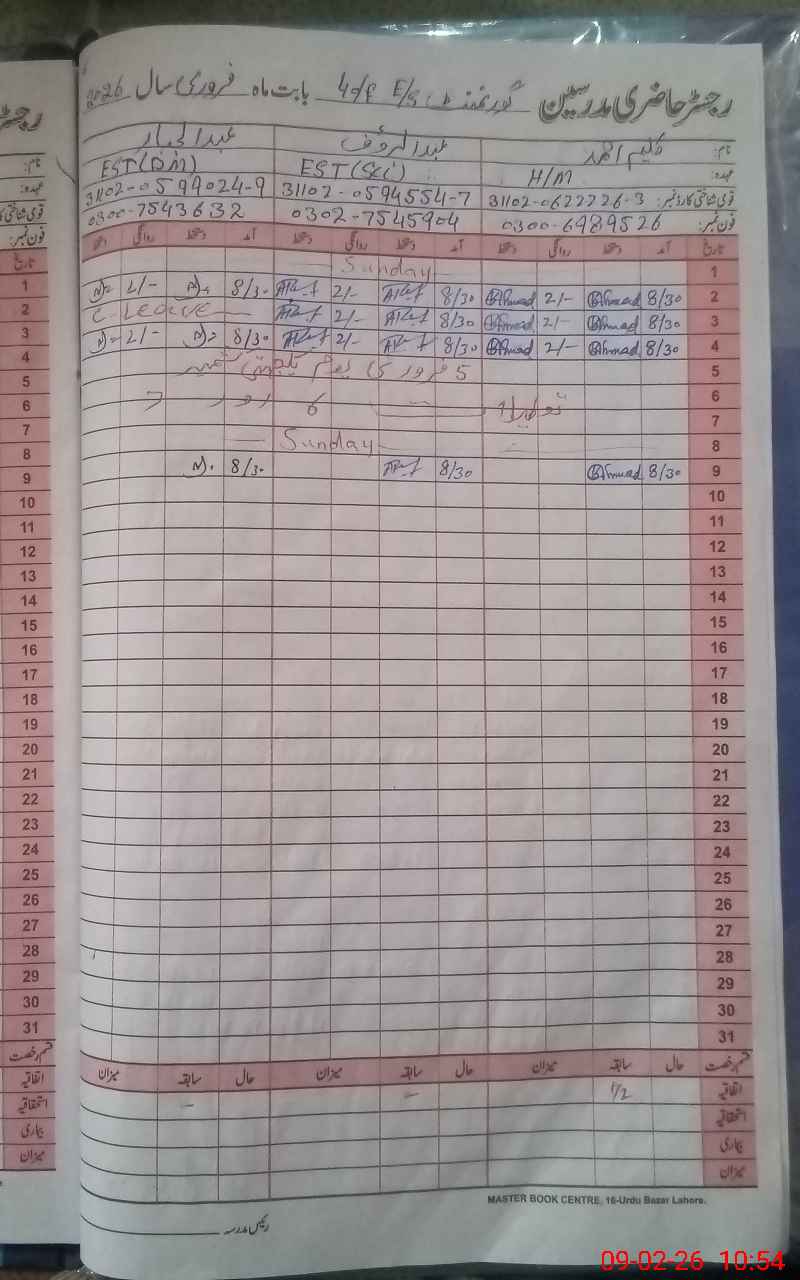 رجسٹر حاضری مدرسین گورنمنٹ E/S 4d/F بابت ماہ فروری سال 2026
نام: کلیم احمد عبدالروف عبدالجبار
عہدہ: H/M EST(Sci) EST(DM)
قومی شناختی کارڈ نمبر: 31102-0622226-3 31102-0594554-7 31102-0599024-9
فون نمبر: 0300-6989526 0302-7545904 0300-7543632
تاریخ آمد دستخط روانگی دستخط آمد دستخط روانگی دستخط آمد دستخط روانگی دستخط
1 Sunday
2 8/30 Ahmad 2/- Ahmad 8/30 2/- 8/30 2/-
3 8/30 Ahmad 2/- Ahmad 8/30 2/- C. Leave
4 8/30 Ahmad 2/- Ahmad 8/30 2/- 8/30 2/-
5 5 فروری یوم یکجہتی کشمیر
6
7
8 Sunday
9 8/30 Ahmad 8/30 8/30
10
11
12
13
14
15
16
17
18
19
20
21
22
23
24
25
26
27
28
29
30
31
قسم رخصت حال سابقہ میزان حال سابقہ میزان حال سابقہ میزان
اتفاقیہ 1/2 - -
استحقاقیہ
بیماری
میزان
MASTER BOOK CENTRE, 16-Urdu Bazar Lahore.
رئیس مدرسہ
09-02-26 10:54